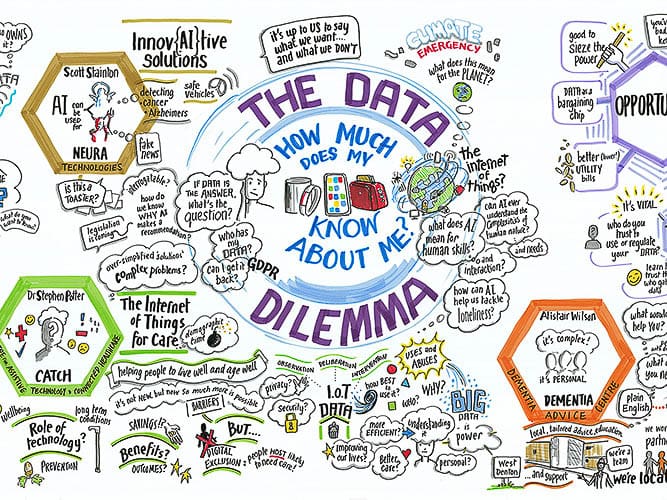 OWNS
it?
DATA
Innov{AI}tive
solutions
Scott Stainton
AI can be
used for
NEURA
TECHNOLOGIES
detecting
• cancer
• Alzheimers
safe
vehicles
fake
news
it's up to US to say
what we want....
and what we DON'T
CLIMATE
EMERGENCY
what does this mean
for the PLANET?
THE DATA
DILEMMA
HOW MUCH
DOES MY
KNOW
ABOUT ME?
good to
sieze the
power
DATA as a
bargaining
chip
better (lower!)
UTILITY
bills
OPPORTU
it's VITAL
who do you
trust to
use or regulate
your DATA
is this a
TOASTER?
legislation
is coming
interrogatable?
how do
we know
WHY AI
makes a
recommendation?
over-simplified solutions
complex problems?
IF DATA IS
THE ANSWER,
what's the
question?
Who has
my
DATA?
Can I get it
back?
GDPR
the
internet
of
things?
can AI ever
understand the
complexities of
human nature?
and needs
what does AI
mean for
human skills?
and interaction?
how can AI
help us tackle
loneliness?
Dr Stephen Potter
CATCH
TECHNOLOGY & CONNECTED HEALTHCARE
The Internet
of Things
for Care
demographic
time
helping people to live well and age well
it's not new but now so much more is possible
BARRIERS
OBSERVATION
DELIBERATION
INTERVENTION
privacy?
Security?
I.o.T
DATA
how BEST
to use it?
uses and
ABUSES
who?
Why?
BIG
DATA
is power
more
EFFICIENT?
understanding
it
improving
our lives?
Better
care?
personal?
wellbeing
long term
conditions
Role of
technology?
PREVENTION
SAVINGS?
Benefits?
OUTCOMES?
BUT....
DIGITAL
EXCLUSION
PEOPLE MOST likely
to need care?
Alistair Wilson
it's complex!
it's PERSONAL
DEMENTIA
ADVICE
DEMENTIA
CENTRE
local, tailored advice, education
West
Denton
... and support
we're a
team
we're loc
Plain
English